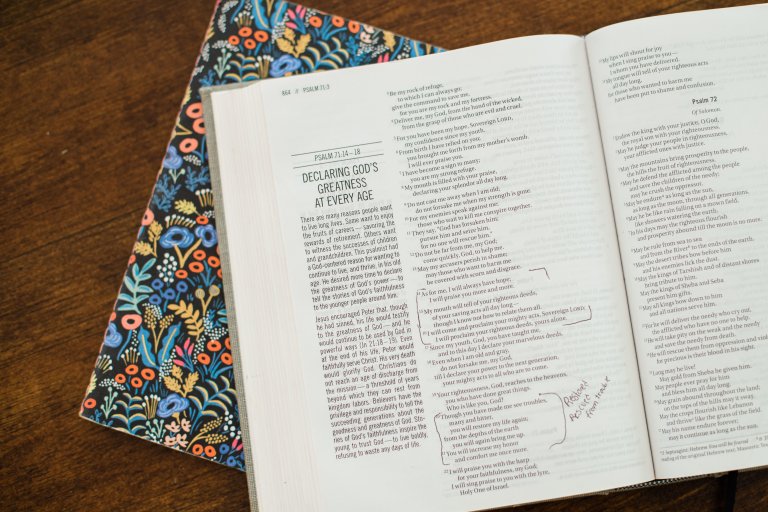 864 // PSALM 71:3
PSALM 71:14–18
DECLARING GOD'S
GREATNESS
AT EVERY AGE
There are many reasons people want
to live long lives. Some want to enjoy
the fruits of careers — savoring the
rewards of retirement. Others want
to witness the successes of children
and grandchildren. This psalmist had
a God-centered reason for wanting to
continue to live, and thrive, in his old
age. He desired more time to declare
the greatness of God's power — to
tell the stories of God's faithfulness
to the younger people around him.
Jesus encouraged Peter that, though
he had sinned, his life would testify
to the greatness of God — and he
would continue to be used by God in
powerful ways (Jn 21:18–19). Even
at the end of his life, Peter would
faithfully serve Christ. His very death
would glorify God. Christians do
not reach an age of discharge from
the mission — a threshold of years
beyond which they can rest from
kingdom labors. Believers have the
privilege and responsibility to tell the
succeeding generations about the
goodness and greatness of God. Sto-
ries of God's faithfulness inspire the
young to trust God — to live boldly,
refusing to waste any days of life.
3 Be my rock of refuge,
to which I can always go;
give the command to save me,
for you are my rock and my fortress.
4 Deliver me, my God, from the hand of the wicked,
from the grasp of those who are evil and cruel.
5 For you have been my hope, Sovereign Lord,
my confidence since my youth.
6 From birth I have relied on you;
you brought me forth from my mother's womb.
I will ever praise you.
7 I have become a sign to many;
you are my strong refuge.
8 My mouth is filled with your praise,
declaring your splendor all day long.
9 Do not cast me away when I am old;
do not forsake me when my strength is gone.
10 For my enemies speak against me;
those who wait to kill me conspire together.
11 They say, "God has forsaken him;
pursue him and seize him,
for no one will rescue him."
12 Do not be far from me, my God;
come quickly, God, to help me.
13 May my accusers perish in shame;
may those who want to harm me
be covered with scorn and disgrace.
14 As for me, I will always have hope;
I will praise you more and more.
15 My mouth will tell of your righteous deeds,
of your saving acts all day long —
though I know not how to relate them all.
16 I will come and proclaim your mighty acts, Sovereign Lord;
I will proclaim your righteous deeds, yours alone.
17 Since my youth, God, you have taught me,
and to this day I declare your marvelous deeds.
18 Even when I am old and gray,
do not forsake me, my God,
till I declare your power to the next generation,
your mighty acts to all who are to come.
19 Your righteousness, God, reaches to the heavens,
you who have done great things.
Who is like you, God?
20 Though you have made me see troubles,
many and bitter,
you will restore my life again;
from the depths of the earth
you will again bring me up.
21 You will increase my honor
and comfort me once more.
22 I will praise you with the harp
for your faithfulness, my God;
I will sing praise to you with the lyre,
Holy One of Israel.
23 My lips will shout for joy
when I sing praise to you —
I whom you have delivered.
24 My tongue will tell of your righteous acts
all day long,
for those who wanted to harm me
have been put to shame and confusion.
Psalm 72
Of Solomon.
1 Endow the king with your justice, O God,
the royal son with your righteousness.
2 May he judge your people in righteousness,
your afflicted ones with justice.
3 May the mountains bring prosperity to the people,
the hills the fruit of righteousness.
4 May he defend the afflicted among the people
and save the children of the needy;
may he crush the oppressor.
5 May he endure as long as the sun,
as long as the moon, through all generations.
6 May he be like rain falling on a mown field,
like showers watering the earth.
7 In his days may the righteous flourish
and prosperity abound till the moon is no more.
8 May he rule from sea to sea
and from the River to the ends of the earth.
9 May the desert tribes bow before him
and his enemies lick the dust.
10 May the kings of Tarshish and of distant shores
bring tribute to him.
May the kings of Sheba and Seba
present him gifts.
11 May all kings bow down to him
and all nations serve him.
12 For he will deliver the needy who cry out,
the afflicted who have no one to help.
13 He will take pity on the weak and the needy
and save the needy from death.
14 He will rescue them from oppression and
for precious is their blood in his sight.
15 Long may he live!
May gold from Sheba be given him.
May people ever pray for him
and bless him all day long.
16 May grain abound throughout the land;
on the tops of the hills may it sway.
May the crops flourish like Lebanon
and thrive like the grass of the field.
17 May his name endure forever;
may it continue as long as the sun.